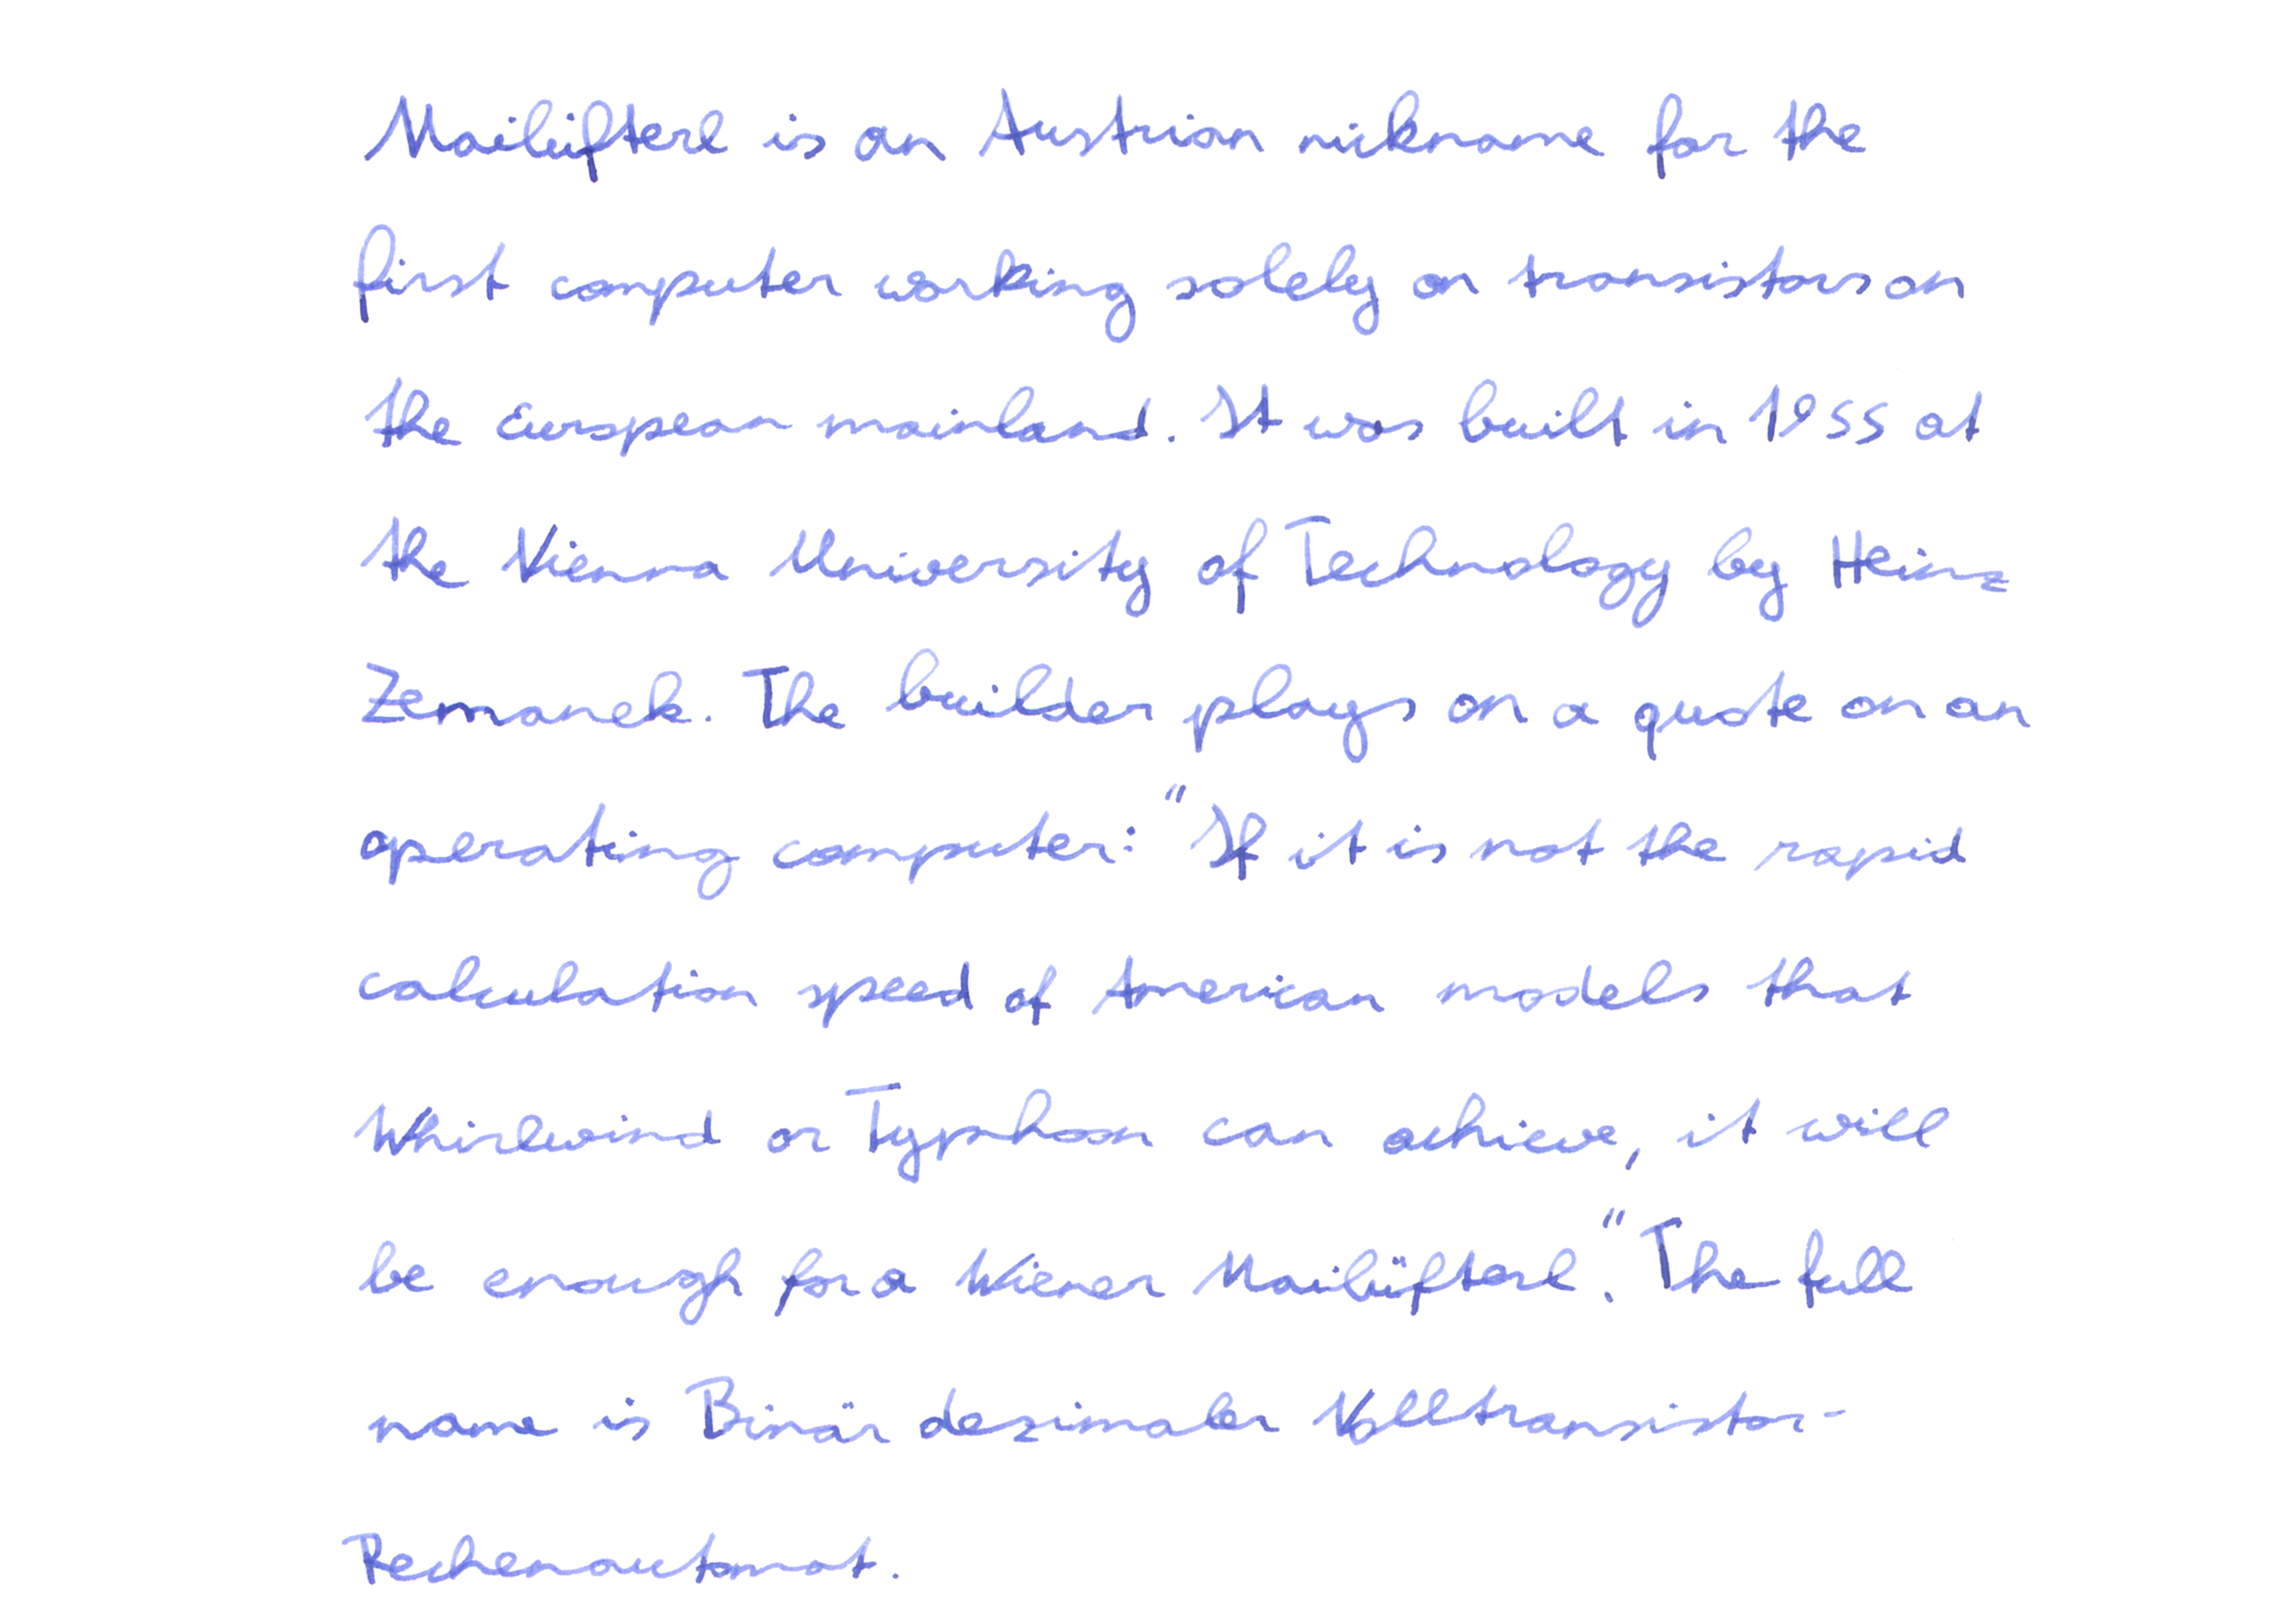 Mailüfterl is an Austrian nickname for the
first computer working solely on transistors on
the european mainland. It was built in 1955 at
the Vienna University of Technology by Heinz
Zemanek. The builder plays on a quote on an
operating computer: "If it is not the rapid
calculation speed of American models that
Whirlwind or Typhoon can achieve, it will
be enough for a Wiener Mailüfterl." The full
name is Binär dezimaler Volltransistor-
Rechenautomat.